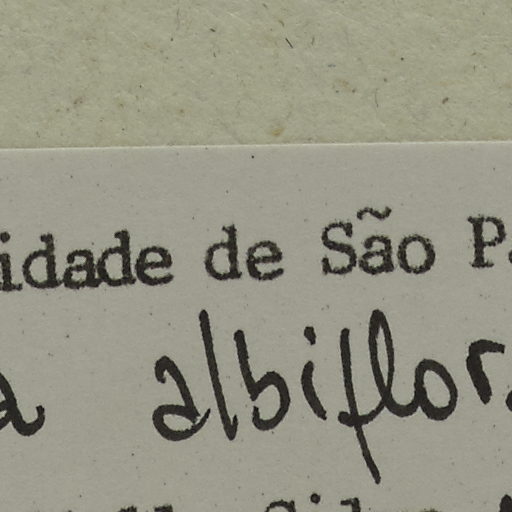 idade de São P
a albiflor